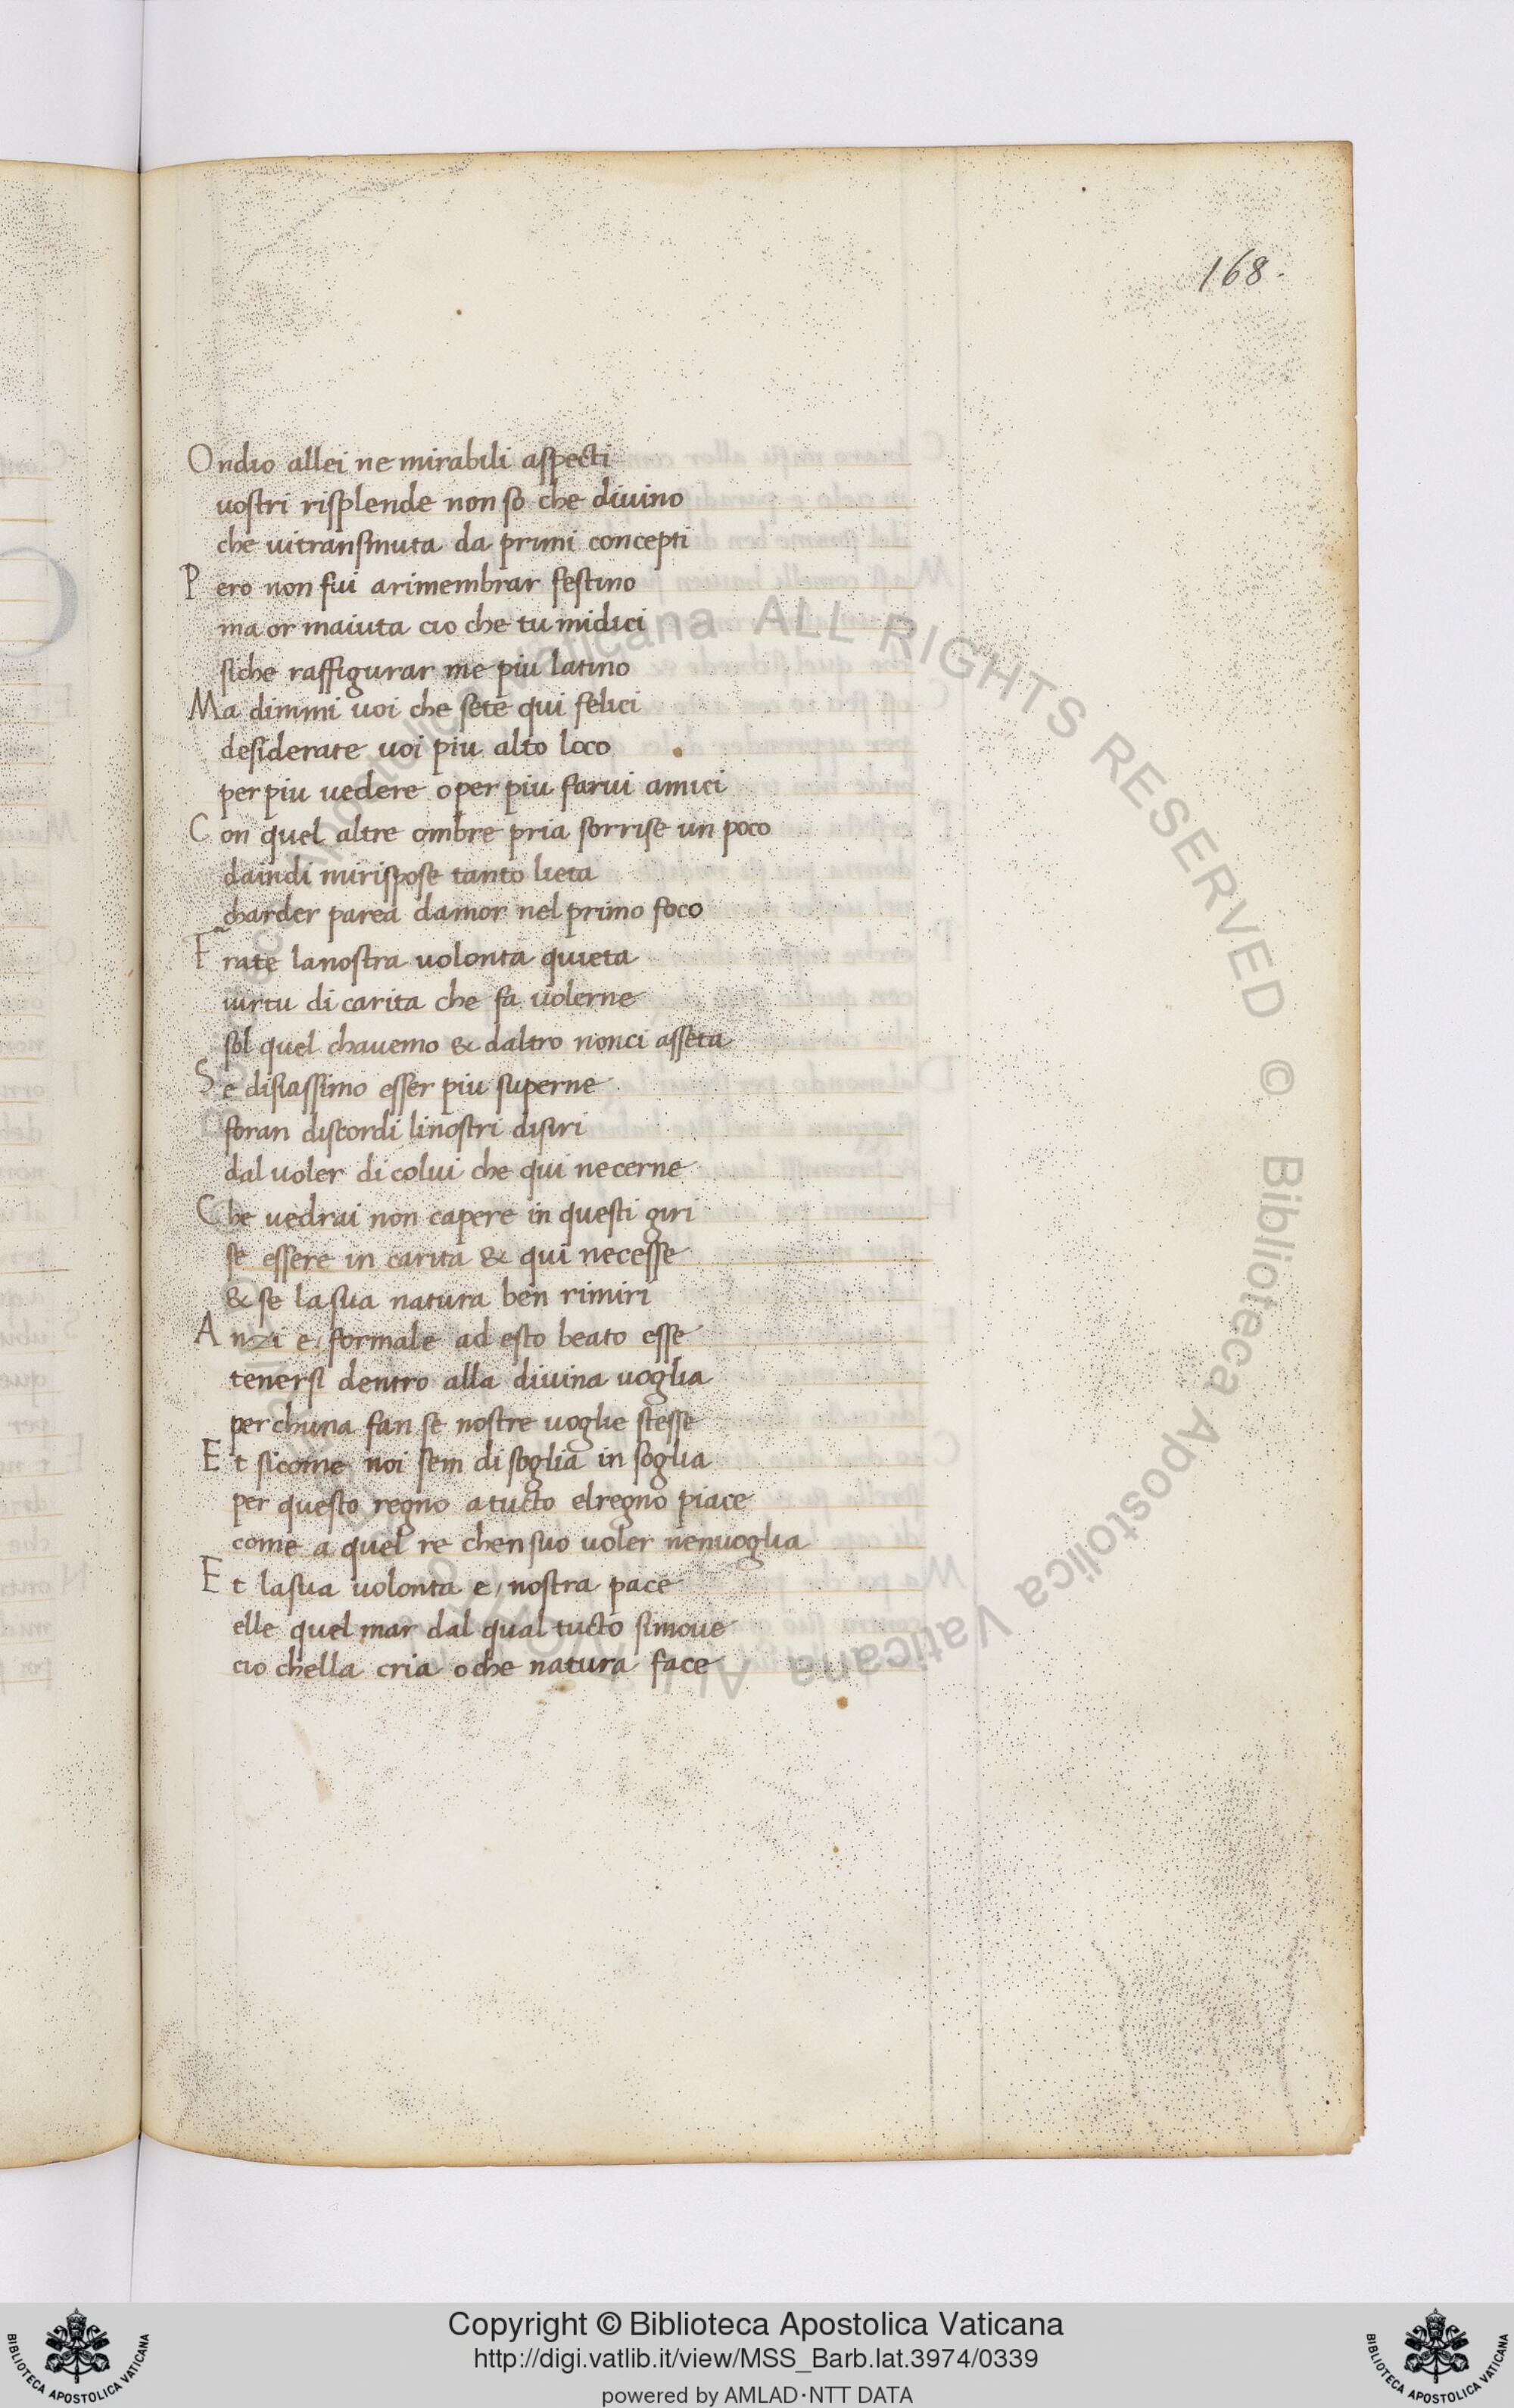 168.
Ondio allei ne mirabili aspecti
uostri risplende non so che diuino
che uitransmuta da primi concepti
Pero non fui arimembrar festino
ma or maiuta cio che tu midici
siche raffigurar me piu latino
Ma dimmi uoi che sete qui felici
desiderate uoi piu alto loco
per piu uedere o per piu farui amici
Con quel altre ombre pria sorrise un poco
daindi mirispose tanto lieta
charder parea damor nel primo foco
Frate lanostra uolonta quieta
uirtu di carita che fa uolerne
sol quel chauemo & daltro nonci asseta
Se disiassimo esser piu superne
foran discordi linostri disiri
dal uoler di colui che qui necerne
Che uedrai non capere in questi giri
se essere in carita & qui necesse
& se lasua natura ben rimiri
Anzi e formale ad esto beato esse
tenersi dentro alla diuina uoglia
per chuna fan se nostre uoglie stesse
Et sicome noi sem di soglia in soglia
per questo regno atucto elregno piace
come a quel re chensuo uoler nenuoglia
Et lasua uolonta e nostra pace
elle quel mar dal qual tucto simoue
cio chella cria o che natura face
Biblioteca Apostolica Vaticana ALL RIGHTS RESERVED © Biblioteca Apostolica Vaticana ALL
Copyright © Biblioteca Apostolica Vaticana
http://digi.vatlib.it/view/MSS_Barb.lat.3974/0339
powered by AMLAD·NTT DATA
BIBLIOTECA APOSTOLICA VATICANA
BIBLIOTECA APOSTOLICA VATICANA